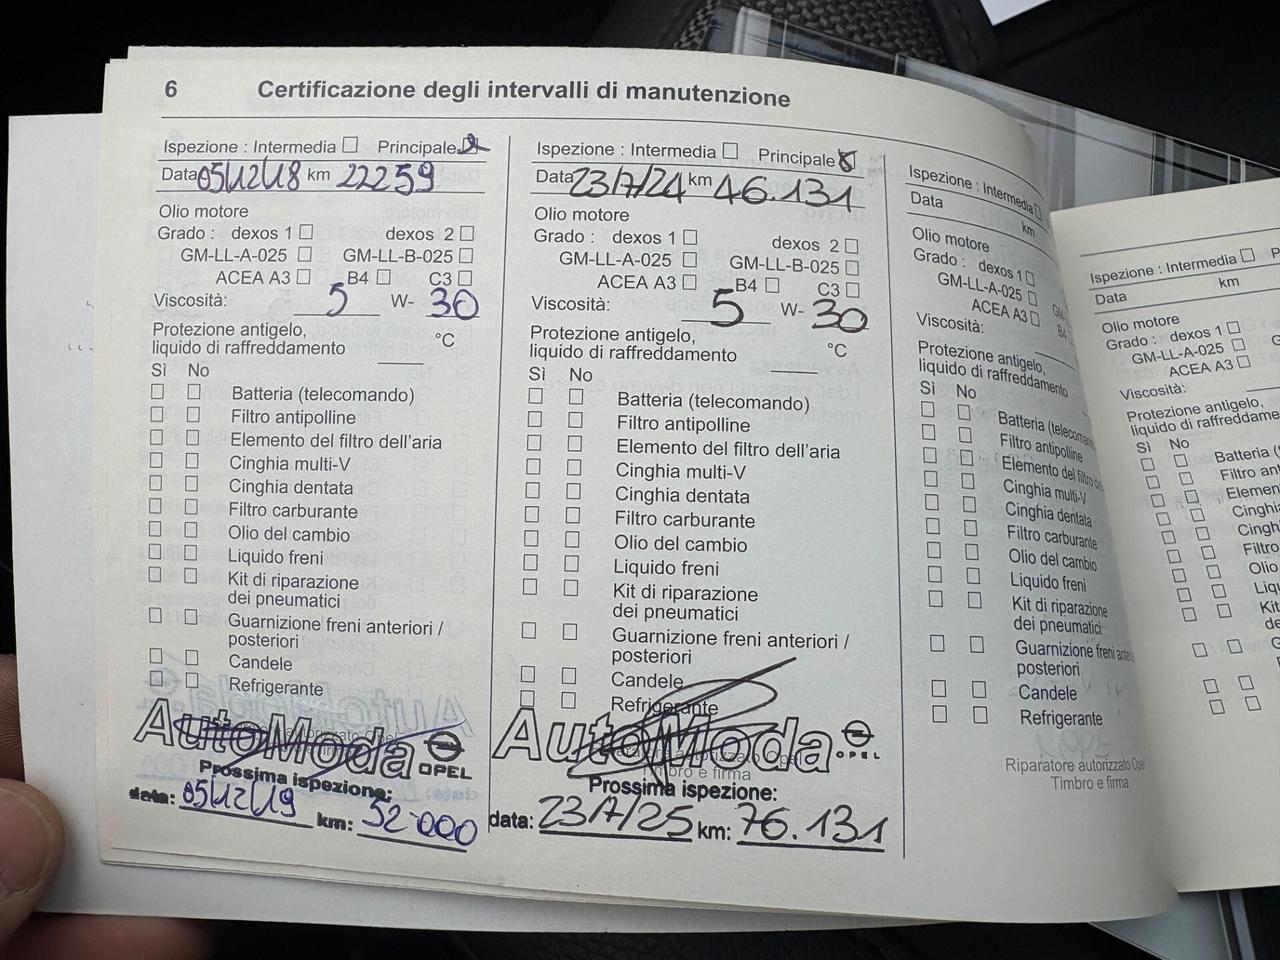 6 Certificazione degli intervalli di manutenzione
Ispezione : Intermedia Principale
Data 05/12/18 km 22259
Olio motore
Grado : dexos 1 dexos 2
GM-LL-A-025 GM-LL-B-025
ACEA A3 B4 C3
Viscosità: 5 W- 30
Protezione antigelo,
liquido di raffreddamento °C
Sì No
Batteria (telecomando)
Filtro antipolline
Elemento del filtro dell'aria
Cinghia multi-V
Cinghia dentata
Filtro carburante
Olio del cambio
Liquido freni
Kit di riparazione
dei pneumatici
Guarnizione freni anteriori /
posteriori
Candele
Refrigerante
AutoModa OPEL
Prossima ispezione:
data: 05/12/19 km: 52000
Ispezione : Intermedia Principale
Data 23/7/24 km 46.131
Olio motore
Grado : dexos 1 dexos 2
GM-LL-A-025 GM-LL-B-025
ACEA A3 B4 C3
Viscosità: 5 W- 30
Protezione antigelo,
liquido di raffreddamento °C
Sì No
Batteria (telecomando)
Filtro antipolline
Elemento del filtro dell'aria
Cinghia multi-V
Cinghia dentata
Filtro carburante
Olio del cambio
Liquido freni
Kit di riparazione
dei pneumatici
Guarnizione freni anteriori /
posteriori
Candele
Refrigerante
AutoModa OPEL
Timbro e firma
Prossima ispezione:
data: 23/7/25 km: 76.131
Ispezione : Intermedia
Data km
Olio motore
Grado : dexos 1
GM-LL-A-025
ACEA A3 B4
Viscosità:
Protezione antigelo,
liquido di raffreddamento
Sì No
Batteria (telecomando
Filtro antipolline
Elemento del filtro
Cinghia multi-V
Cinghia dentata
Filtro carburante
Olio del cambio
Liquido freni
Kit di riparazione
dei pneumatici
Guarnizione freni
posteriori
Candele
Refrigerante
Riparatore autorizzato Opel
Timbro e firma
Ispezione : Intermedia
Data km
Olio motore
Grado : dexos 1
GM-LL-A-025
ACEA A3
Viscosità:
Protezione antigelo,
liquido di
Sì No
Batteria
Filtro